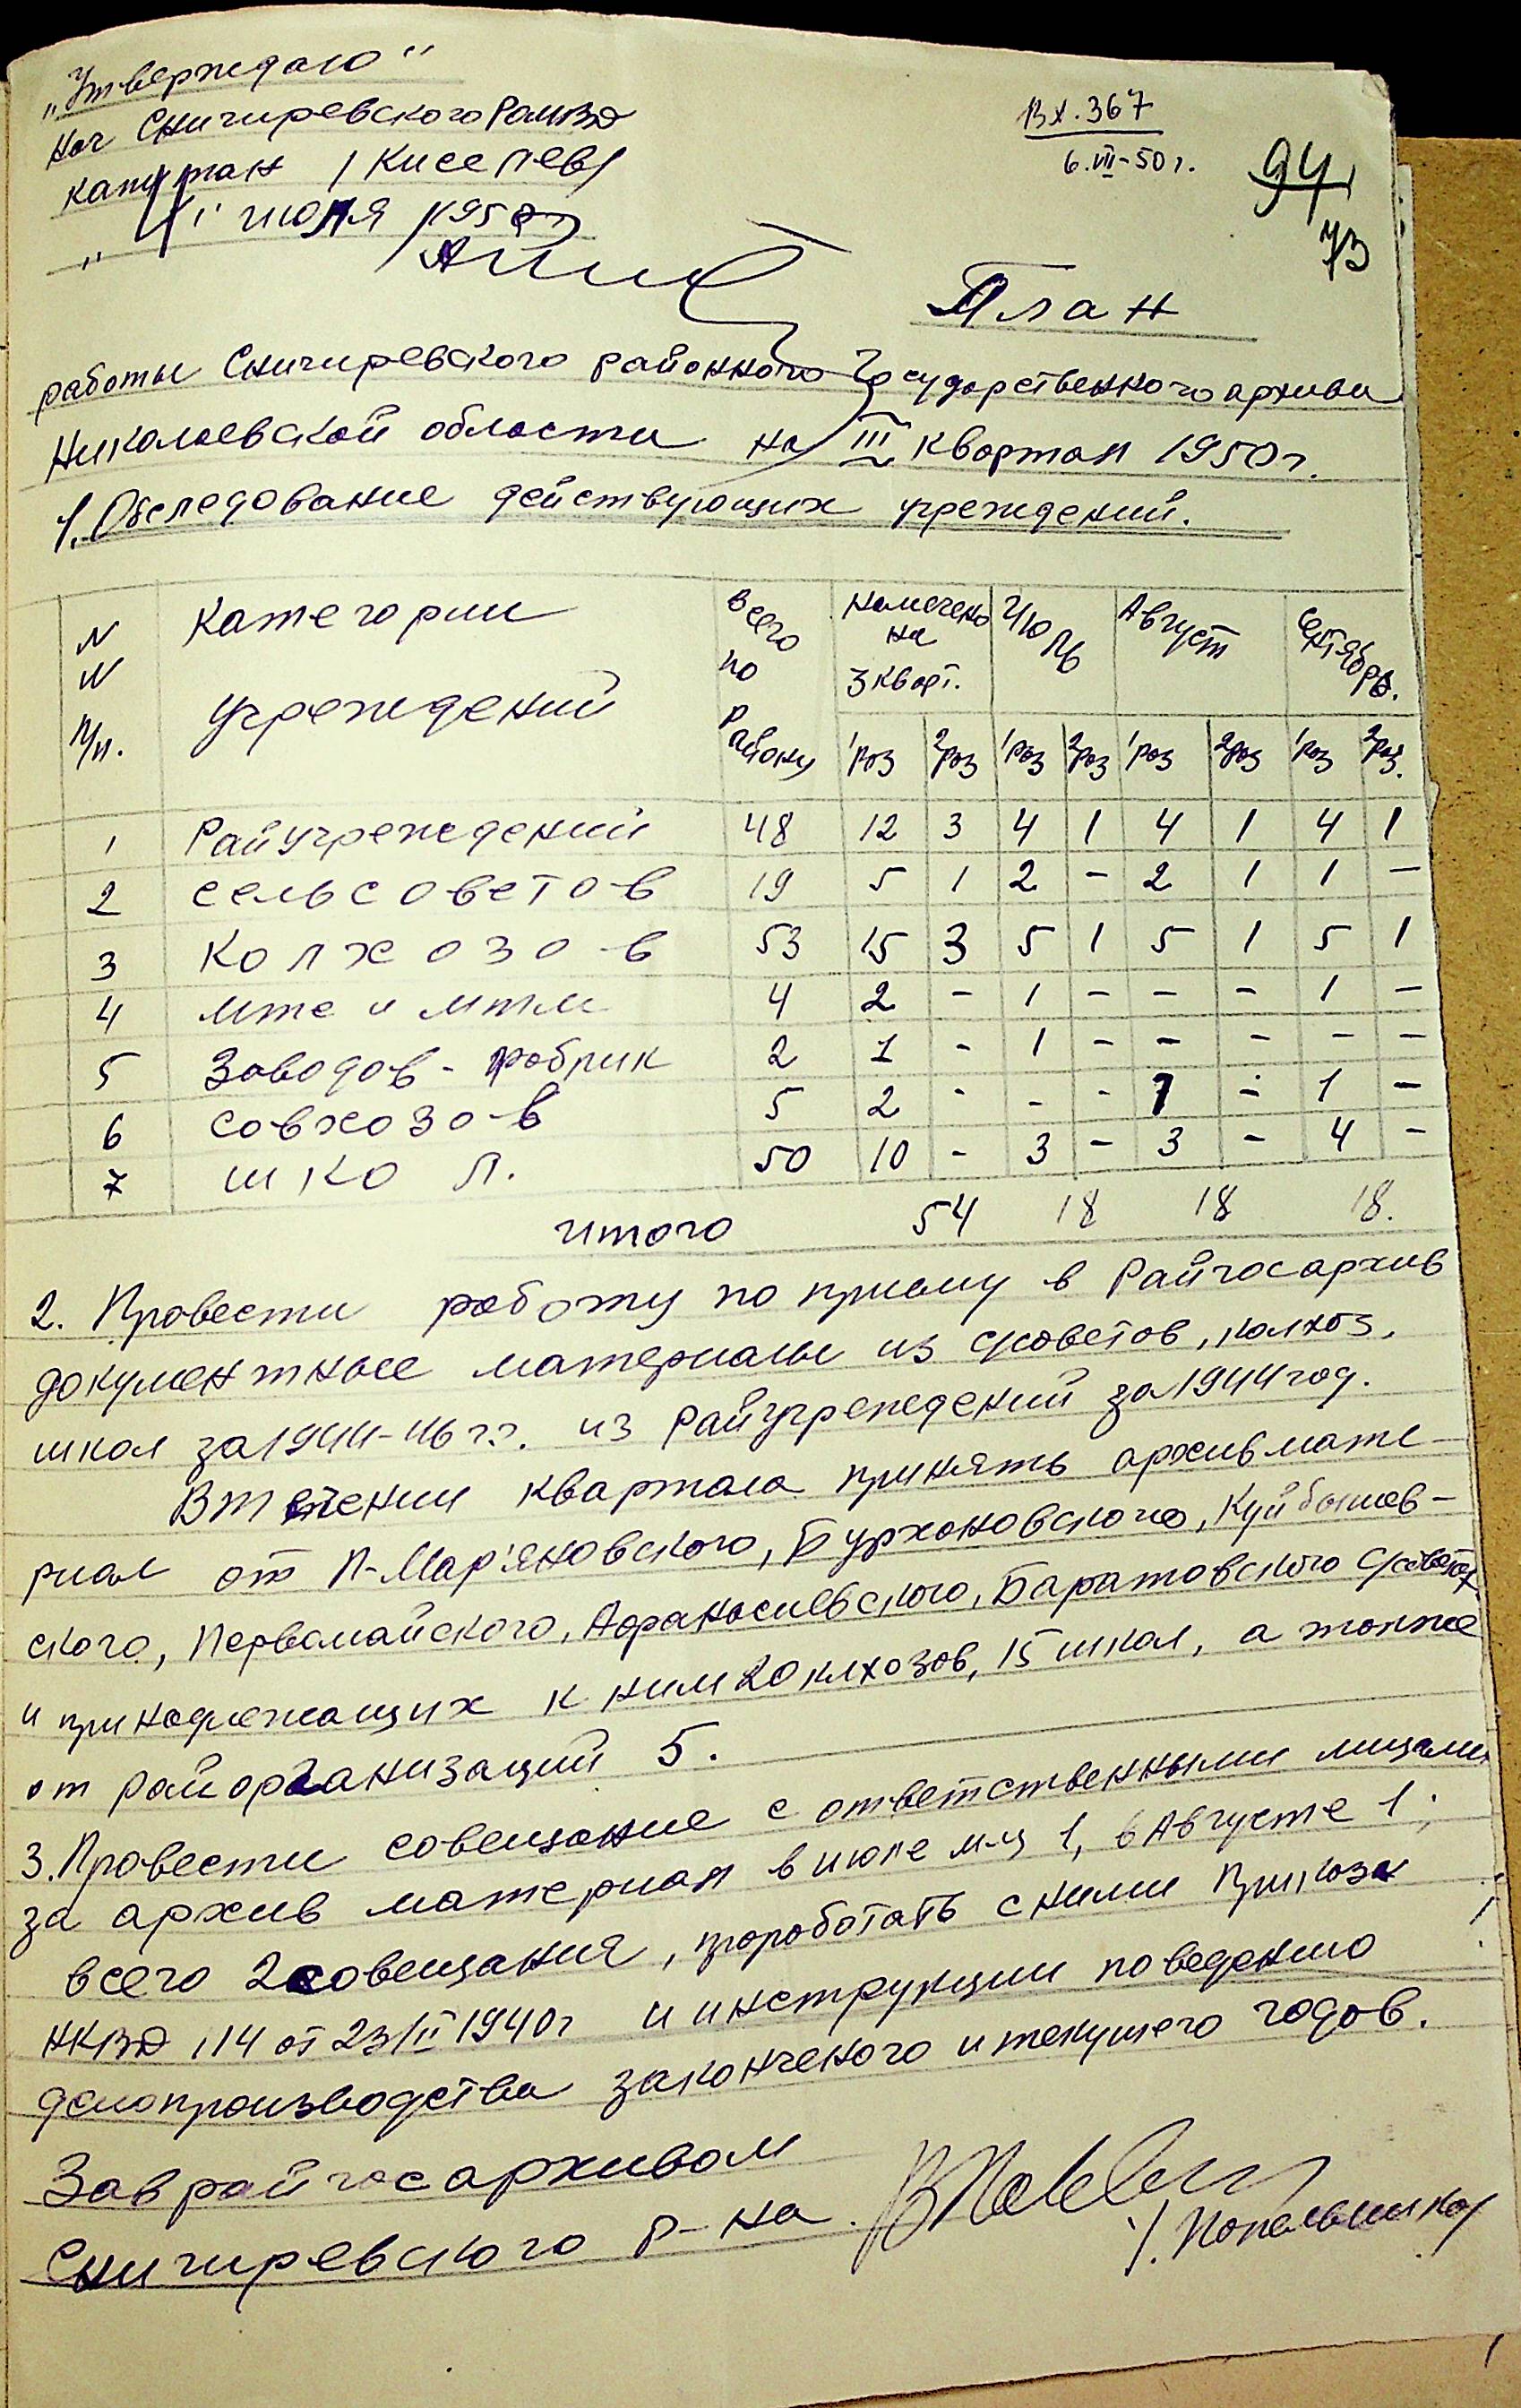 „Утверждаю"
Нач Снигиревского РайМВД
капитан /Киселев/
" " июля 1950г
Вх. 367
6.VII-50г.
94
73
План
работы Снигиревского районного Государственного архива
Николаевской области на III квартал 1950г.
1. Обследование действующих учреждений.
N N п/п. Категории учреждений Всего по району Намечено на 3 кварт. Июль Август Сентябрь.
1 раз 2 раз 1 раз 2 раз 1 раз 2 раз 1 раз 2 раз.
1 Райучреждений 48 12 3 4 1 4 1 4 1
2 сельсоветов 19 5 1 2 - 2 1 1 -
3 Колхозов 53 15 3 5 1 5 1 5 1
4 мтс и мтм 4 2 - 1 - - - 1 -
5 Заводов-фабрик 2 1 - 1 - - - - -
6 совхозов 5 2 - - - 1 - 1 -
7 школ. 50 10 - 3 - 3 - 4 -
итого 54 18 18 18.
2. Провести работу по приему в Райгосархив
документные материалы из с/советов, колхоз,
школ за 1944-46 г.г. из Райучреждений за 1944 год.
В течении квартала принять архивмате-
риал от П-Мар'яновского, Бурхановского, Куйбышев-
ского, Первомайского, Афанасиевского, Баратовского с/советов
и принадлежащих к ним 20 клхозов, 15 школ, а также
от райорганизаций 5.
3. Провести совещание с ответственными лицами
за архив материал в июле м-ц 1, в Августе 1;
всего 2 совещания, проработать с ними Приказ
НКВД 114 от 23/II 1940г и инструкции по ведению
делопроизводства законченого и текущего годов.
Заврайгосархивом
Снигиревского р-на